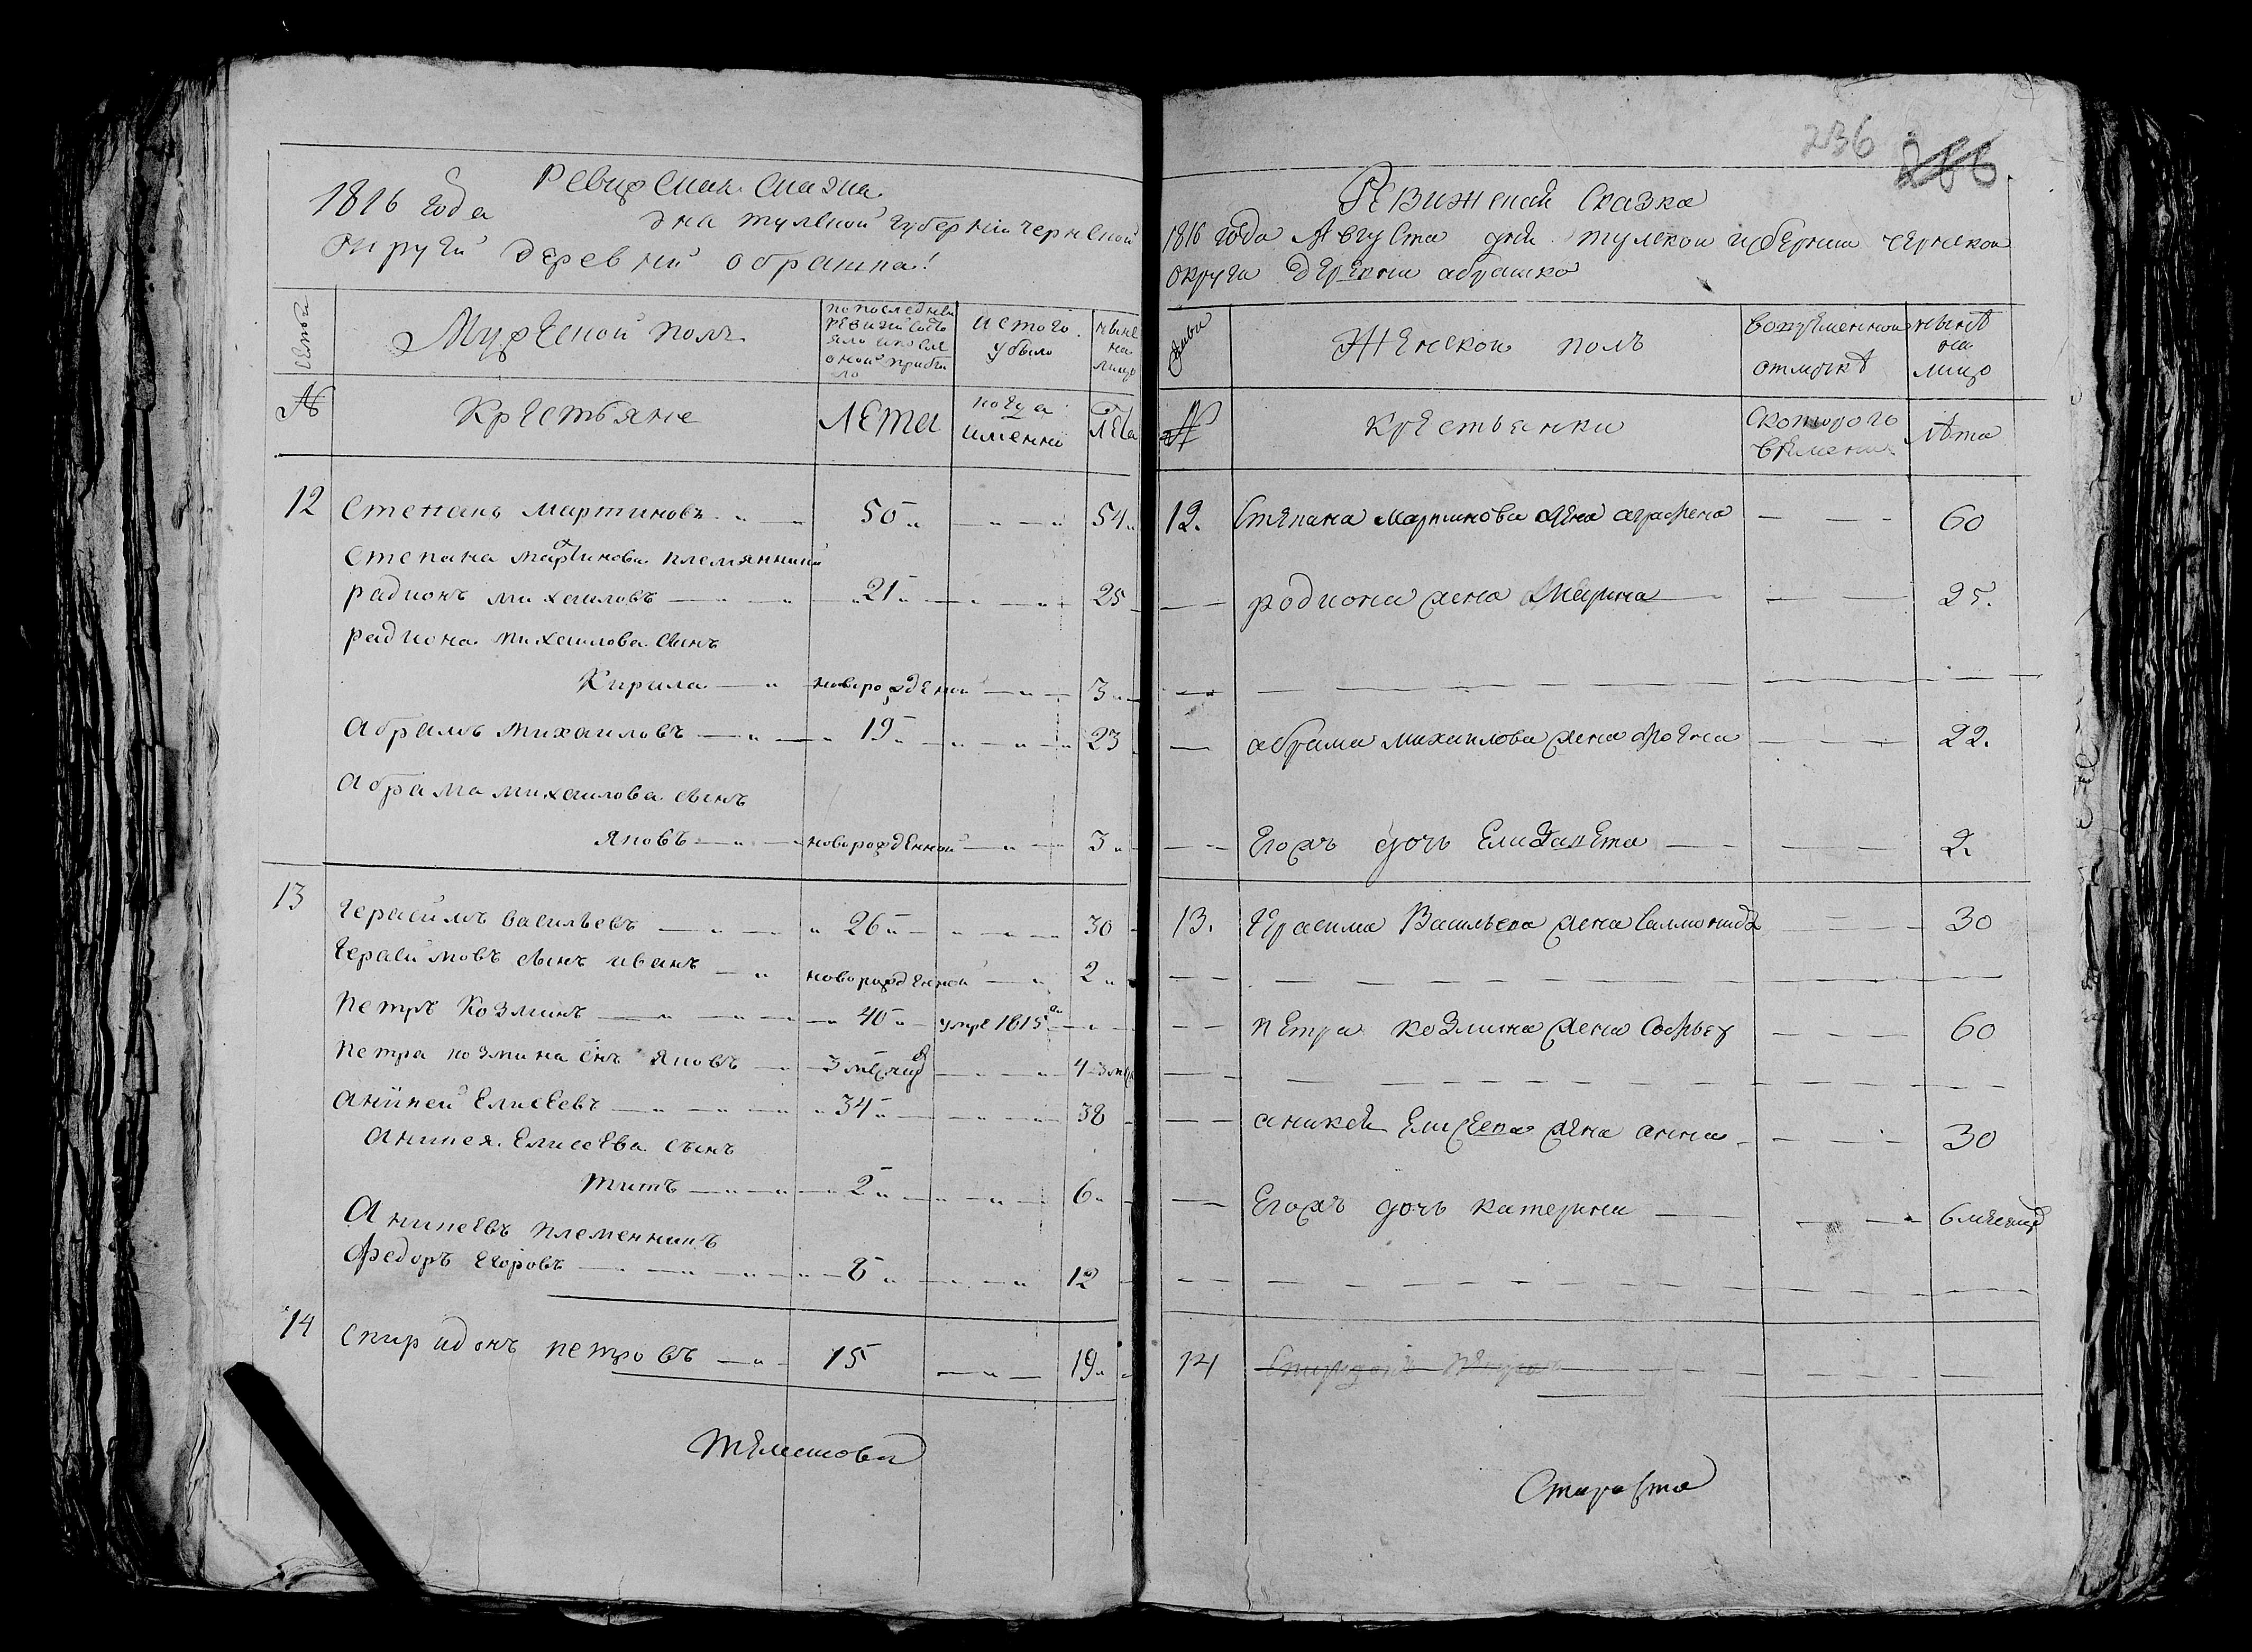 Ревиская сказка
1816 года дня тулской губернии чернской
округи деревни обрашка
семьи
Мужеской полъ
по последней ревизии состояло и после оной прибыло
ис того убыло
ныне на лицо
№
Крестьяне
Лета
когда именно
Лета
12 степанъ мартиновъ 50 54
степана мартинова племянники
радионъ михаиловъ 21 25
радиона михаилова сынъ
Кирила новорожденной 3
абрамъ михаиловъ 19 23
абрама михаилова сынъ
яковъ новорожденной 3
13 герасимъ васильевъ 26 30
герасимовъ сынъ иванъ новорожденной 2
петръ козминъ 40 умре 1815 го
петра козмина снъ яковъ 3 месяцов 4 3 мес
аникей елисеевъ 34 38
аникея елисеева сынъ
титъ 2 6
аникеевъ племенникъ
федоръ егоровъ 8 12
14 спиридонъ петровъ 15 19
236 266
Ревижской сказка
1816 года августа дня тулской губернии чернской
округи деревни абрашка
семьи
Женской полъ
во временной отлучкѣ
нынѣ на лицо
№
крестьянки
с которого времени
лѣта
12. степана мартинова жена аграфена 60
родиона жена Марина 25.
абрама михаилова жена фекла 22.
Егожъ дочь Елизавета 2.
13. герасима Васильева жена саломонида 30
петра козмина жена софья 60
аникей Елисеева жена анна 30
Егожъ дочь катерина 6 месяцов
14 Спиридонъ Петров
Староста